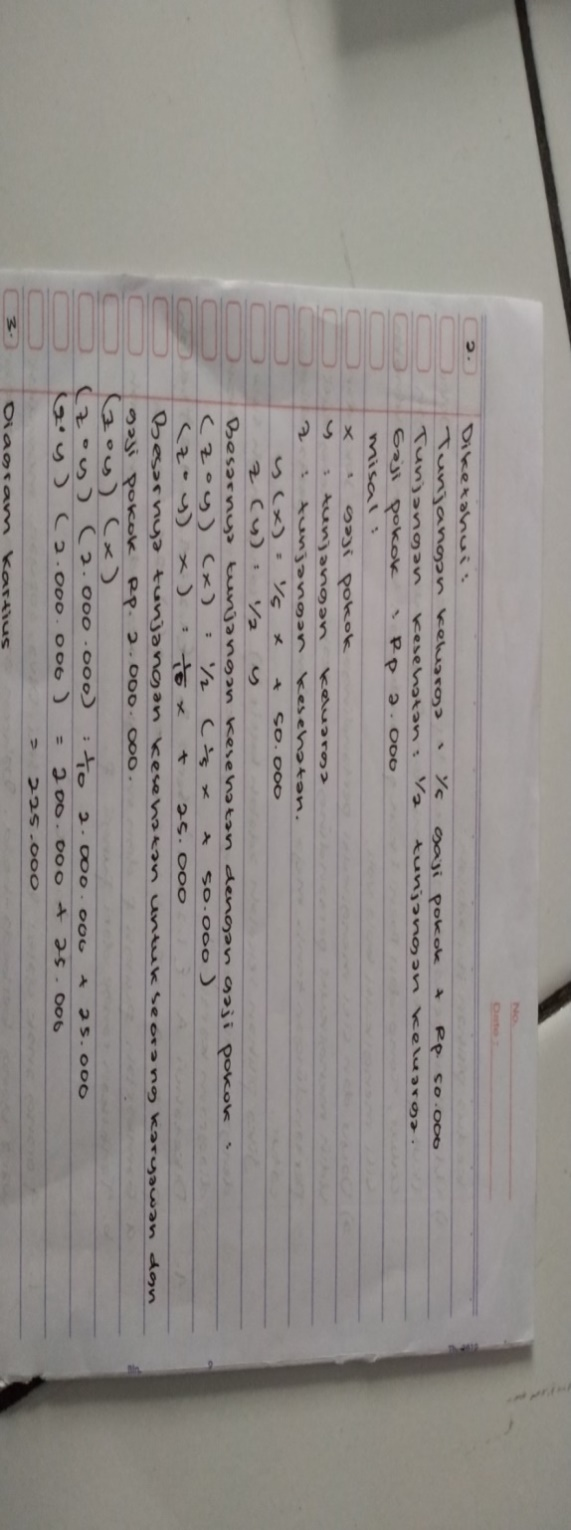 No.
Date :
2. Diketahui :
Tunjangan keluarga : 1/5 gaji pokok + Rp 50.000
Tunjangan kesehatan : 1/2 tunjangan keluarga.
Gaji pokok : Rp 2.000
misal :
x : gaji pokok
y : tunjangan keluarga
z : tunjangan kesehatan.
y(x) = 1/5 x + 50.000
z(y) = 1/2 y
Besarnya tunjangan kesehatan dengan gaji pokok :
(z∘y) (x) = 1/2 (1/5 x + 50.000)
(z∘y) x) = 1/10 x + 25.000
Besarnya tunjangan kesehatan untuk seorang karyawan dan
gaji pokok Rp. 2.000.000.
(z∘y) (x)
(z∘y) (2.000.000) = 1/10 2.000.000 + 25.000
(z∘y) (2.000.000) = 200.000 + 25.000
= 225.000
3. Diagram kartius